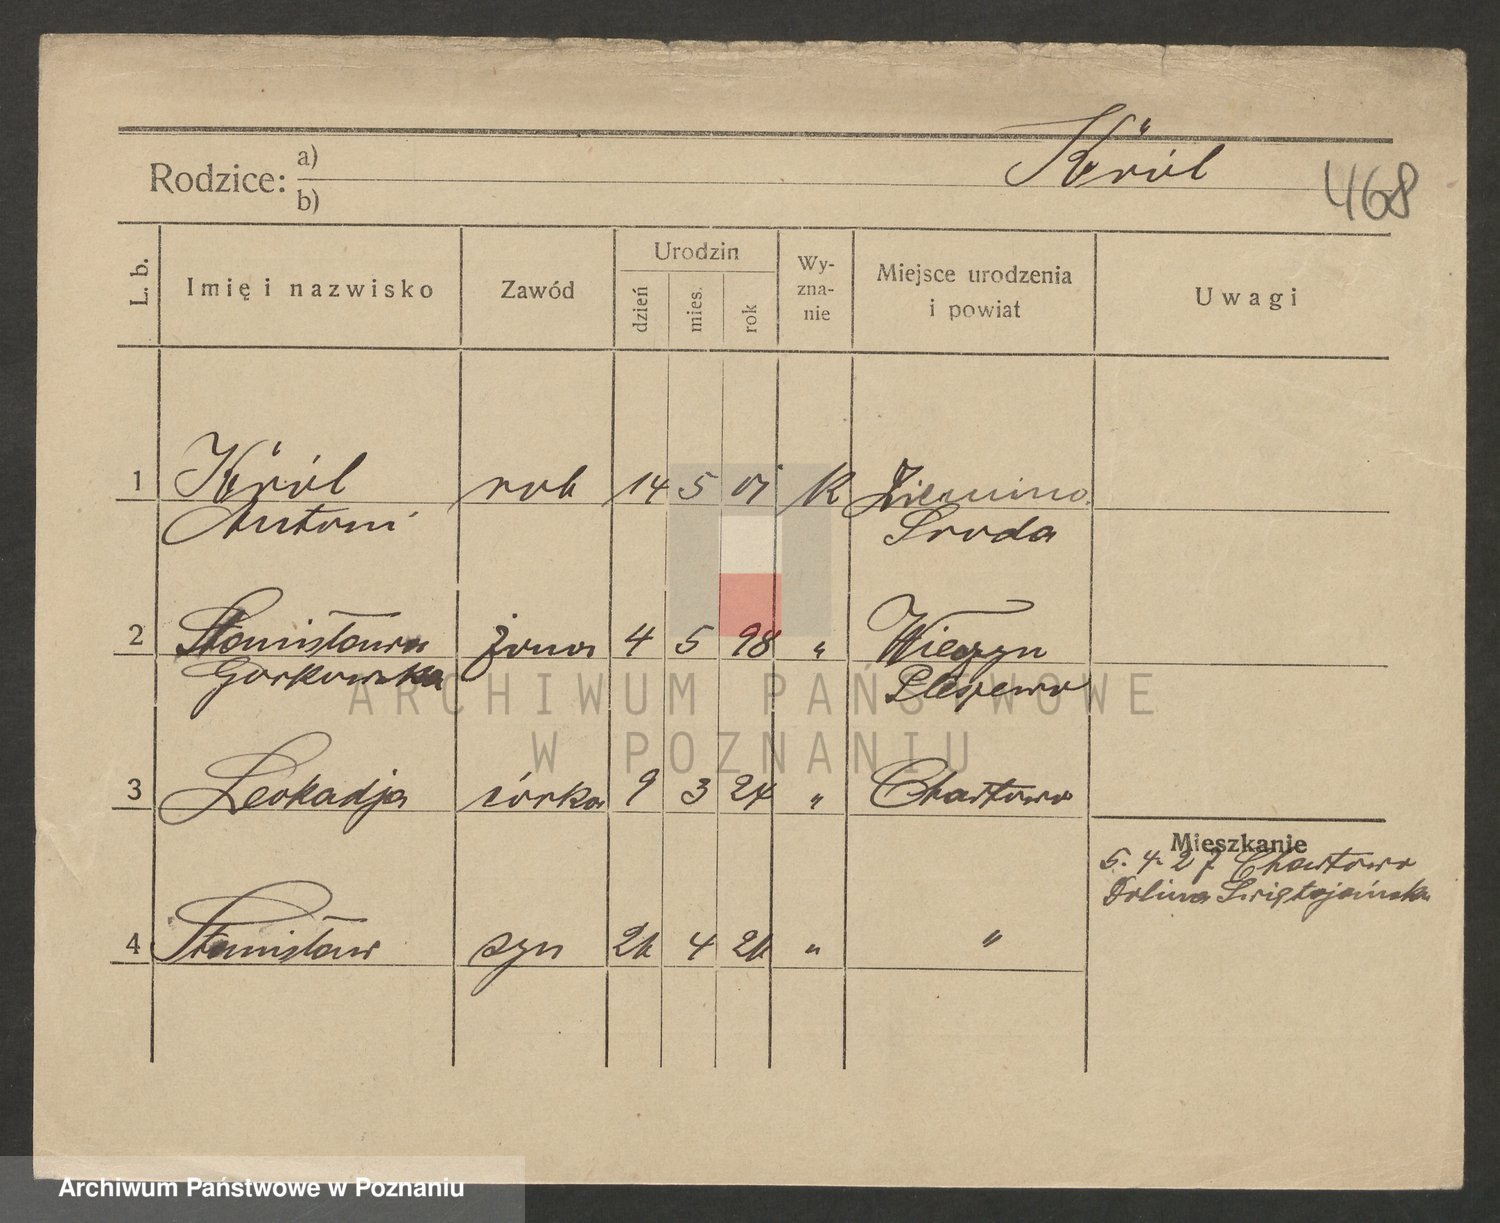 Król
Rodzice: a)
b)
468
L. b.
Imię i nazwisko
Zawód
Urodzin
dzień
mies.
rok
Wy-
zna-
nie
Miejsce urodzenia
i powiat
Uwagi
1 Król rob 14 5 01 K
Antoni Sroda
2 Stanisława żona 4 5 98 "
Gorkowska Pleszewo
3 Leokadja córka 9 3 24 " Chartowo
Mieszkanie
5. 4. 27 Chartowo
Dolina Swiętojańska
4 Stanisław syn 4 "  "
ARCHIWUM PAŃSTWOWE
W POZNANIU
Archiwum Państwowe w Poznaniu